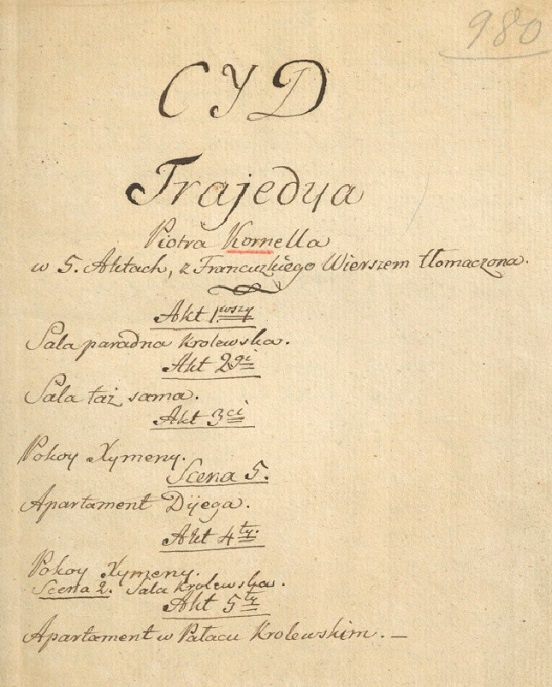 980
CYD
Trajedya
Piotra Kornella
w 5. Aktach, z Francuzkiego Wierszem tłomaczona.
Akt 1wszy
Sala paradna Krolewska.
Akt 2gi
Sala taż sama.
Akt 3ci
Pokoy Xymeny.
Scena 5.
Apartament Dijega.
Akt 4ty.
Pokoy Xymeny.
Scena 2. Sala Krolewska.
Akt 5ty
Apartament w Pałacu Krolewskim. —